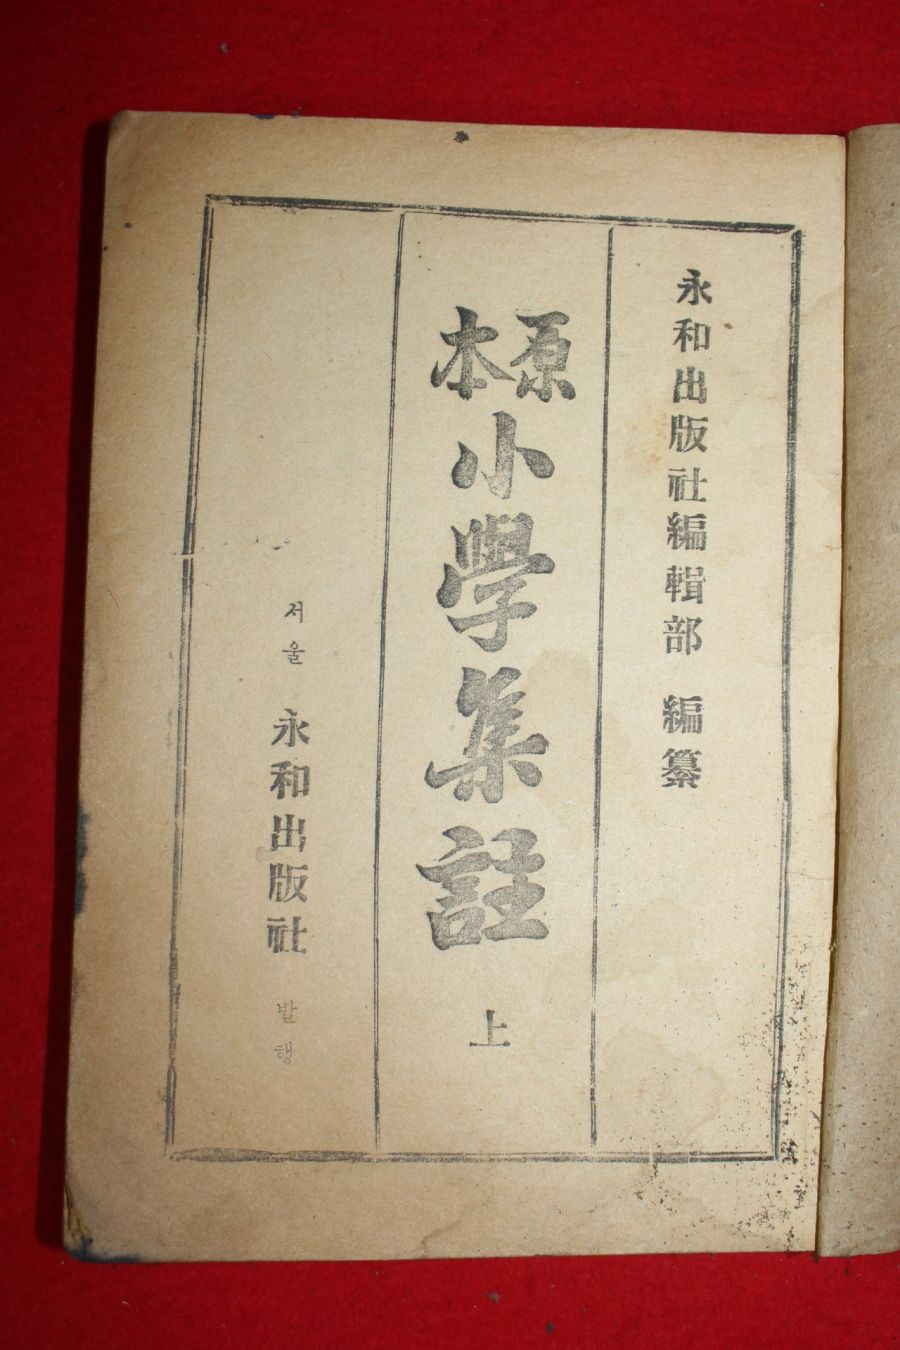 永和出版社編輯部 編纂
原本
小學集註 上
서울 永和出版社 발행